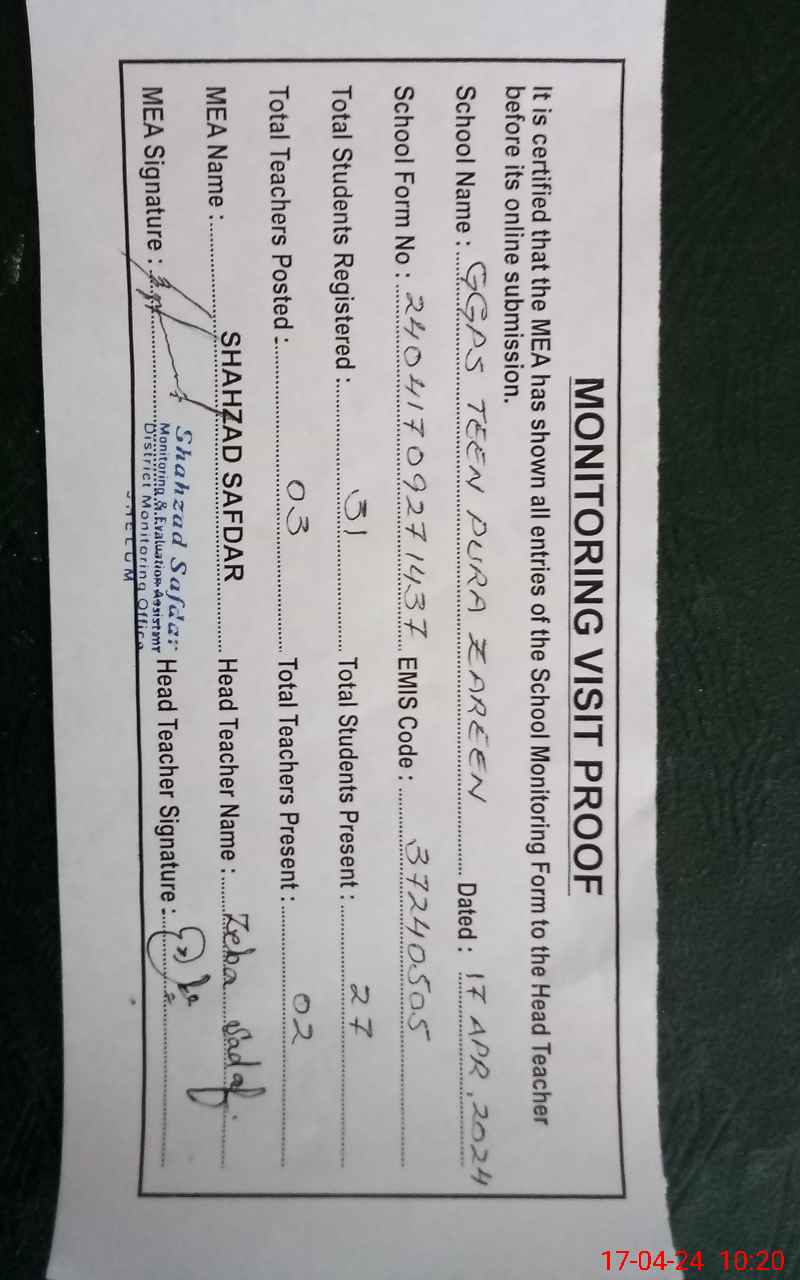 MONITORING VISIT PROOF
It is certified that the MEA has shown all entries of the School Monitoring Form to the Head Teacher
before its online submission.
School Name : GGPS TEEN PURA ZAREEN Dated : 17 APR, 2024
School Form No : 2404170927 1437 EMIS Code : 37240505
Total Students Registered : 31 Total Students Present : 27
Total Teachers Posted : 03 Total Teachers Present : 02
MEA Name : SHAHZAD SAFDAR Head Teacher Name : Zeba Sadaf
MEA Signature : Head Teacher Signature :
Shahzad Safdar
Monitoring & Evaluation Assistant
District Monitoring Office
JHELUM
17-04-24 10:20